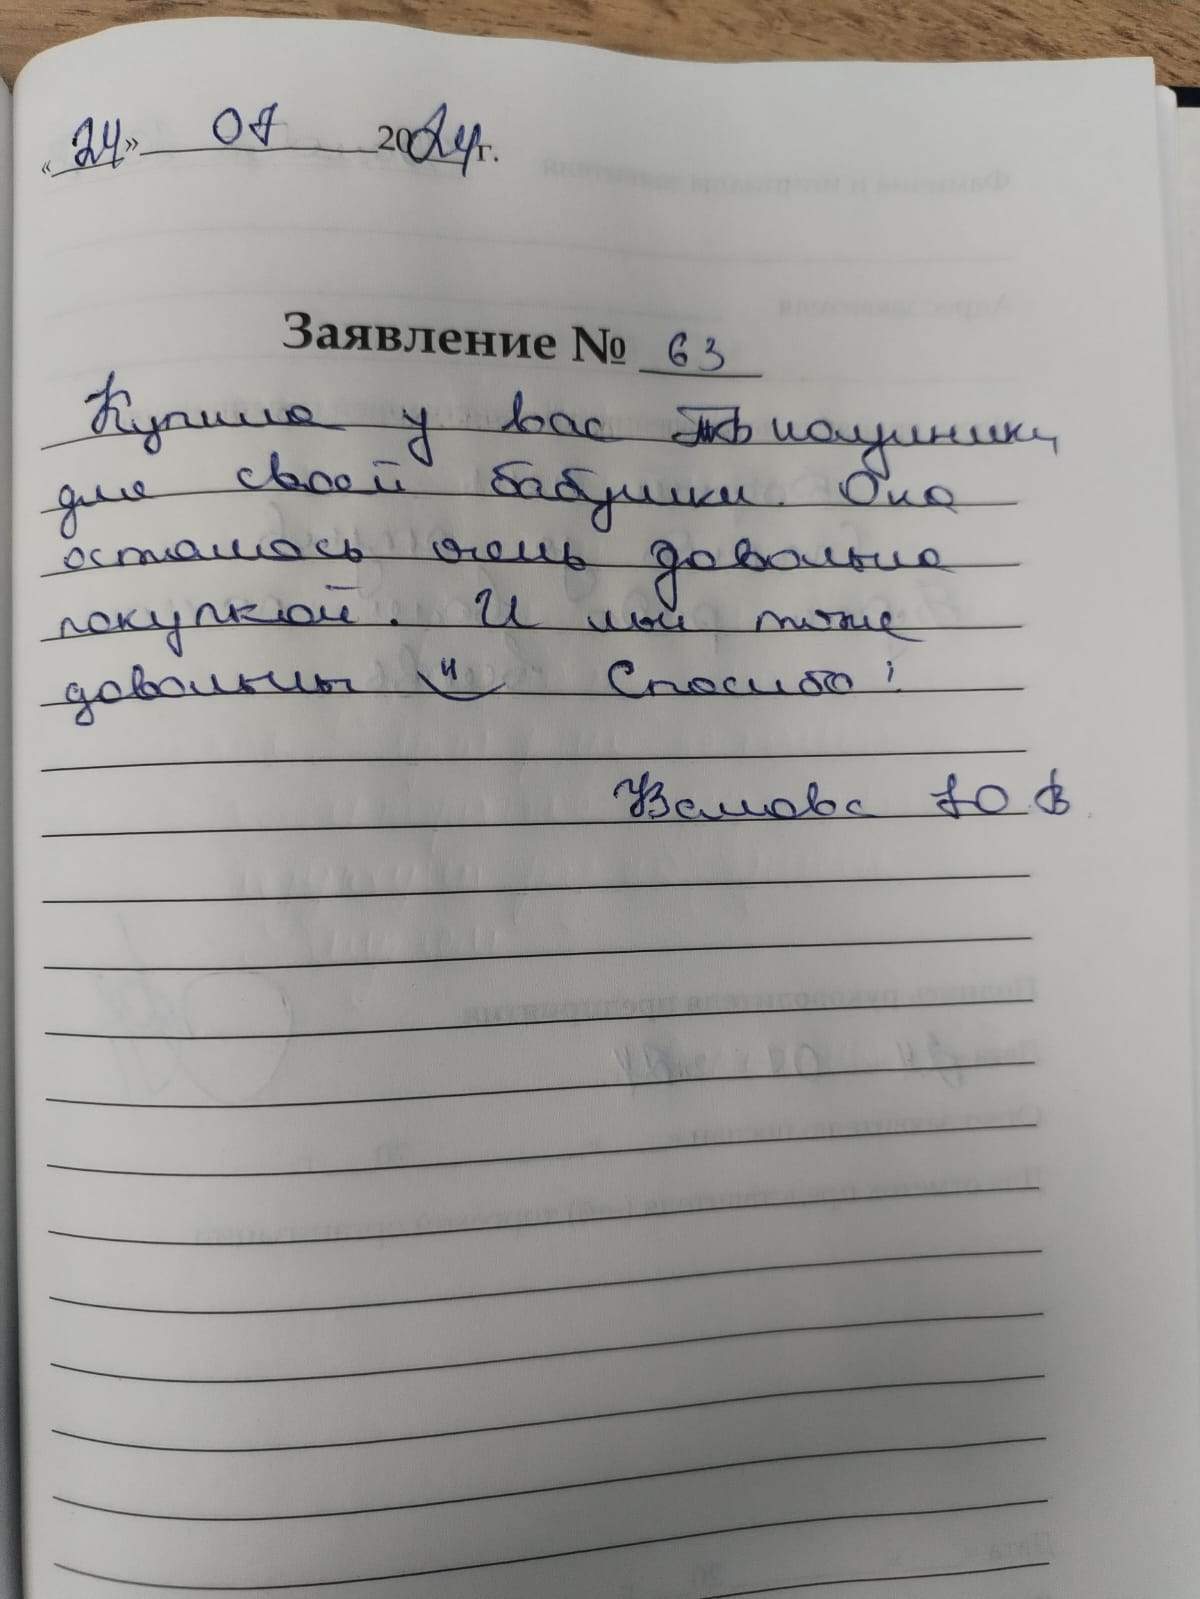 «24» 07 2024 г.
Заявление № 63
Купила у вас
для своей бабушки. Она
осталась очень довольна
покупкой. И мы тоже
довольны Спасибо!
Ю В